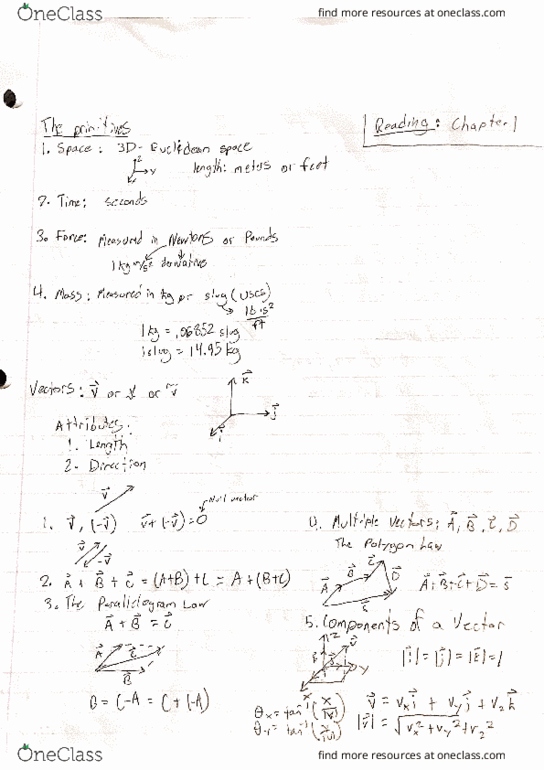 OneClass
find more resources at oneclass.com
The primitives
Reading: Chapter 1
1. Space: 3D- Euclidean space
z
y
length: meters or feet
2. Time: seconds
3. Force: Measured in Newtons or Pounds
1 kg m/s² derivative
4. Mass: Measured in kg or slug (USCS)
lb·s²/ft
1 kg = .06852 slug
1 slug = 14.95 kg
Vectors: v⃗ or v or ṽ
k⃗
j⃗
i⃗
Attributes:
1. Length
2. Direction
v⃗
Null vector
1. v⃗, (-v⃗) v⃗+(-v⃗)=0
v⃗
-v⃗
2. A⃗ + B⃗ + C⃗ = (A+B)+C = A+(B+C)
3. The Parallelogram Law
A⃗ + B⃗ = C⃗
A⃗
C⃗
B⃗
B = C-A = C+(-A)
4. Multiple Vectors; A⃗, B⃗, C⃗, D⃗
The Polygon Law
A⃗ B⃗ C⃗ D⃗
S⃗
A+B+C+D = S⃗
5. Components of a Vector
z
v⃗
y
x
|i⃗|=|j⃗|=|k⃗|=1
θx = tan⁻¹(x/|v|)
θy = tan⁻¹(y/|v|)
v⃗ = vx i⃗ + vy j⃗ + vz k⃗
|v⃗| = √(vx² + vy² + vz²)
OneClass
find more resources at oneclass.com